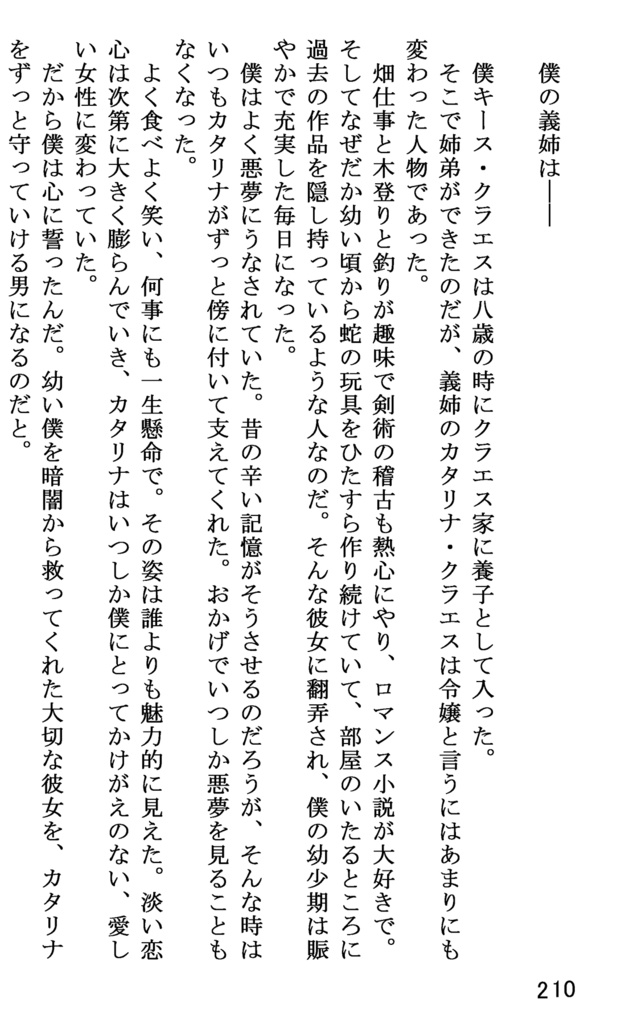 僕の義姉は――
僕キース・クラエスは八歳の時にクラエス家に養子として入った。
そこで姉弟ができたのだが、義姉のカタリナ・クラエスは令嬢と言うにはあまりにも
変わった人物であった。
畑仕事と木登りと釣りが趣味で剣術の稽古も熱心にやり、ロマンス小説が大好きで。
そしてなぜだか幼い頃から蛇の玩具をひたすら作り続けていて、部屋のいたるところに
過去の作品を隠し持っているような人なのだ。そんな彼女に翻弄され、僕の幼少期は賑
やかで充実した毎日になった。
僕はよく悪夢にうなされていた。昔の辛い記憶がそうさせるのだろうが、そんな時は
いつもカタリナがずっと傍に付いて支えてくれた。おかげでいつしか悪夢を見ることも
なくなった。
よく食べよく笑い、何事にも一生懸命で。その姿は誰よりも魅力的に見えた。淡い恋
心は次第に大きく膨らんでいき、カタリナはいつしか僕にとってかけがえのない、愛し
い女性に変わっていた。
だから僕は心に誓ったんだ。幼い僕を暗闇から救ってくれた大切な彼女を、カタリナ
をずっと守っていける男になるのだと。
210